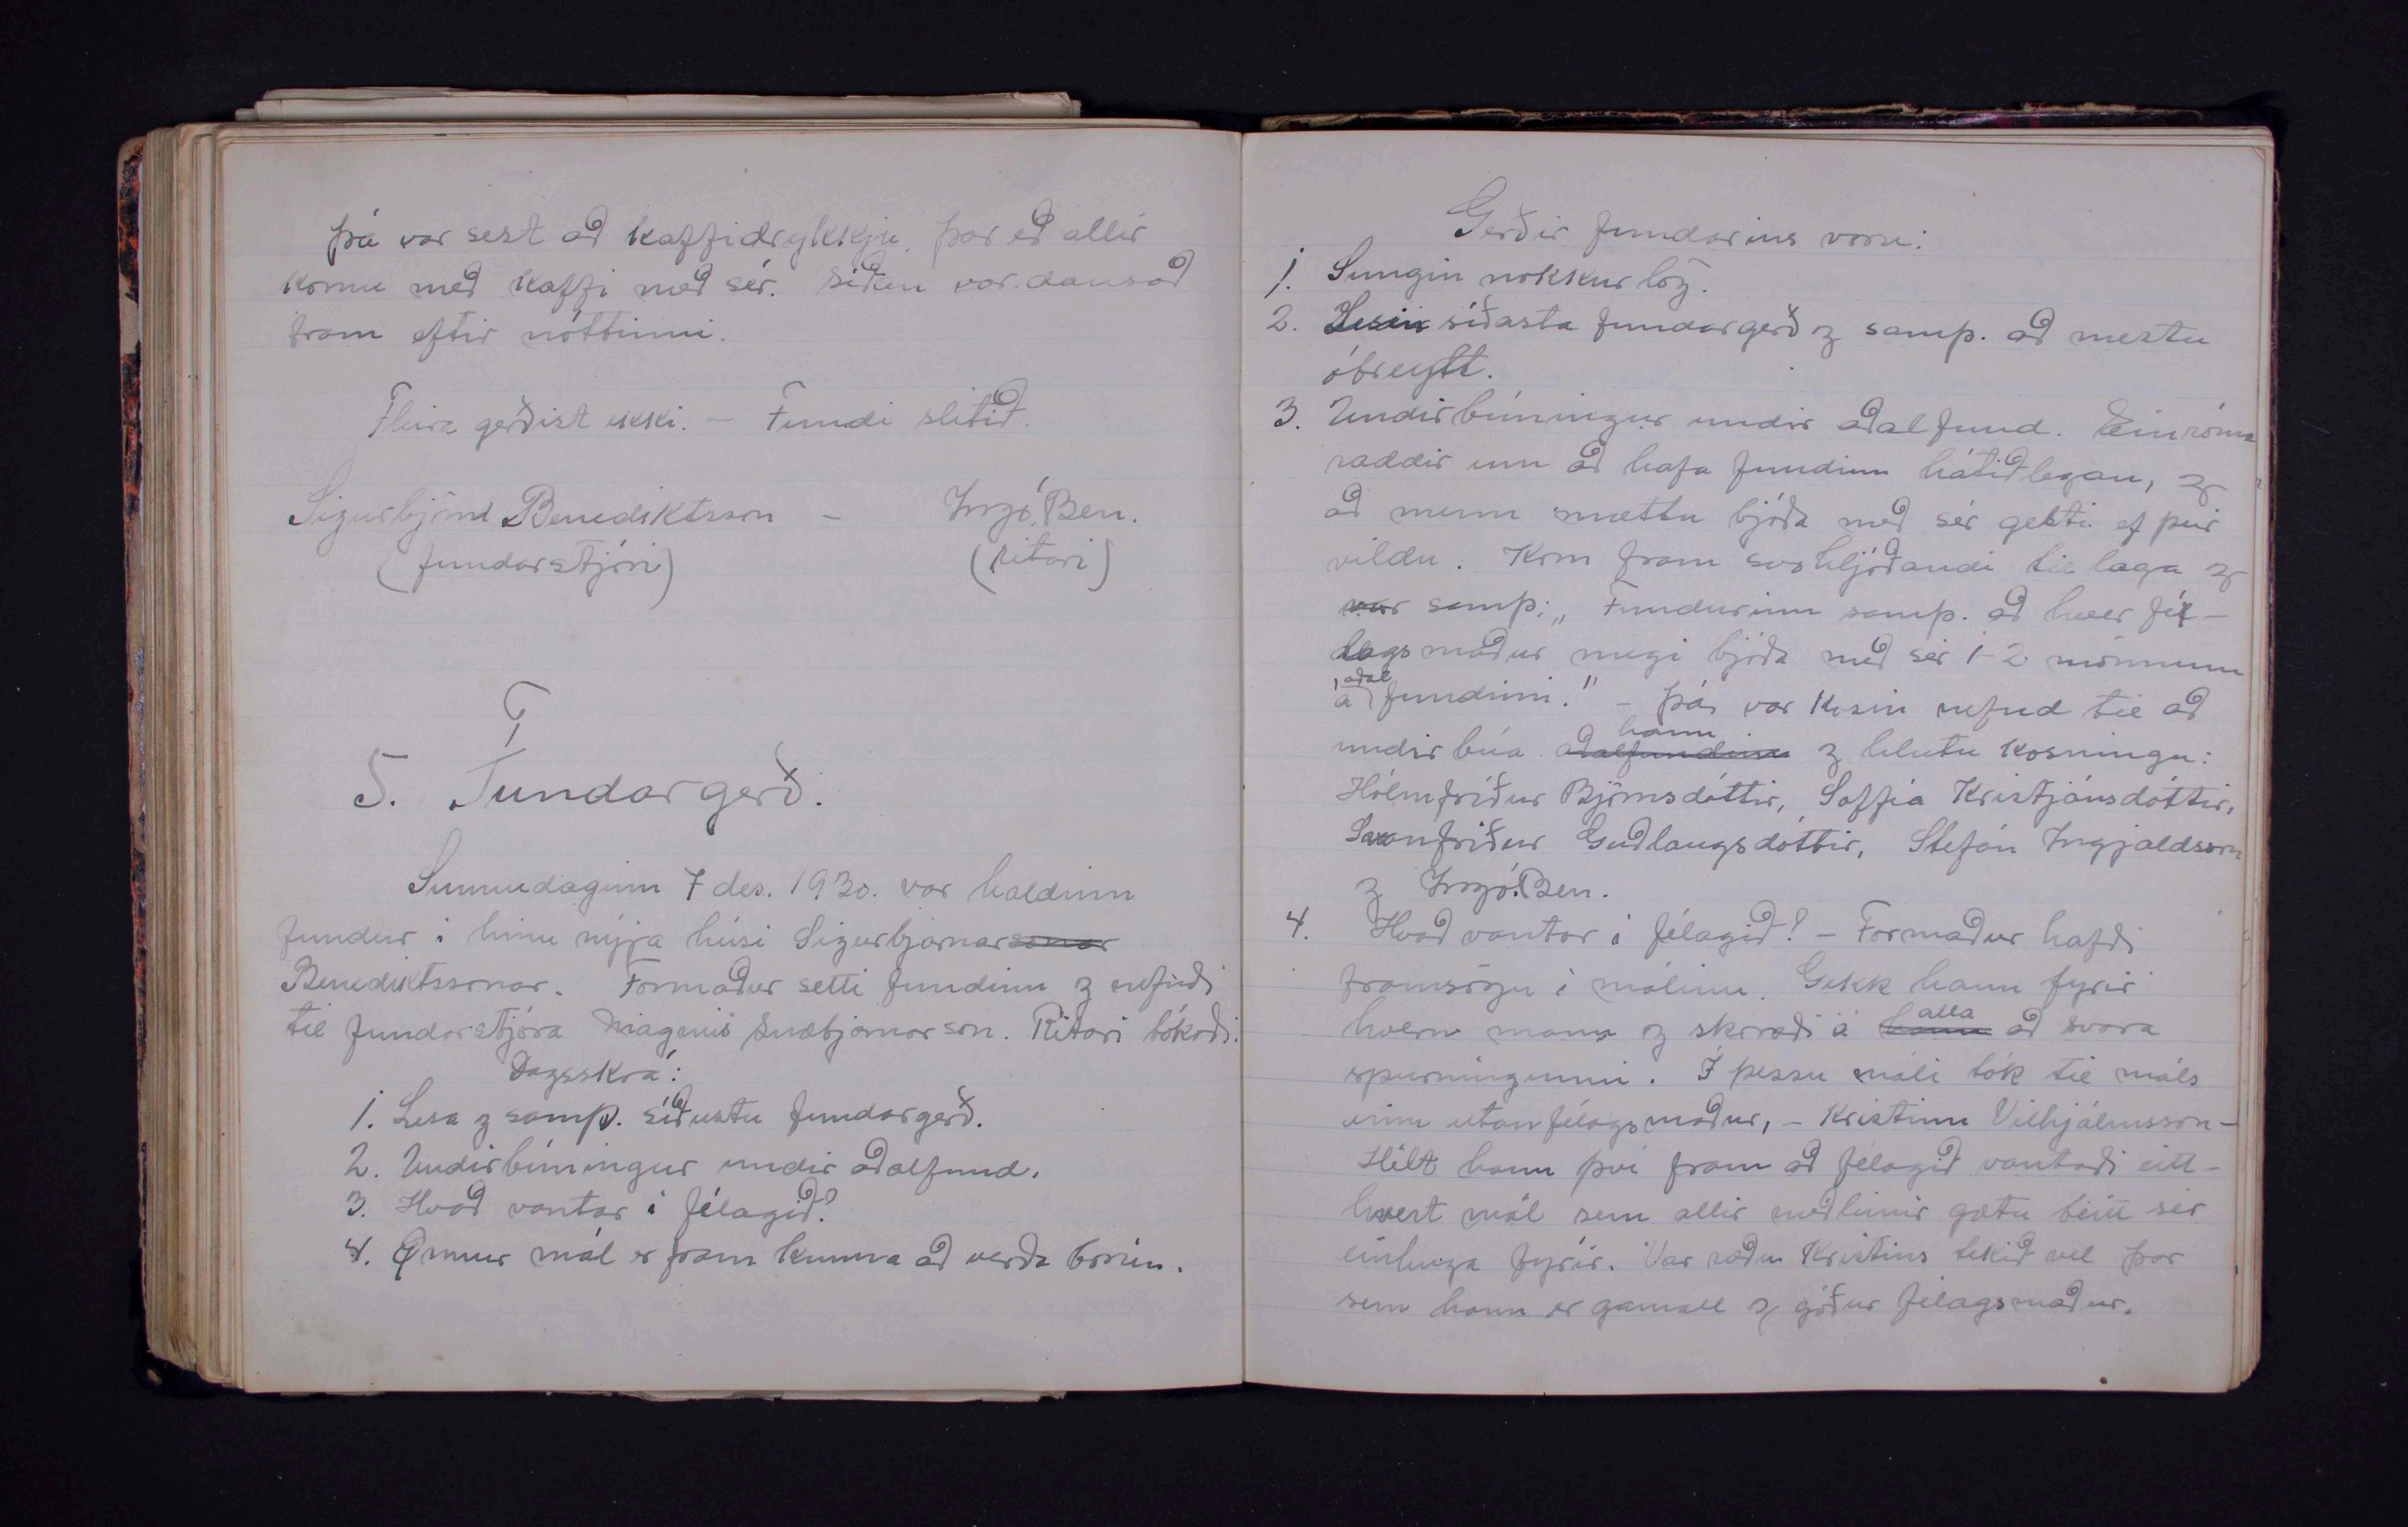 Þá var sest að kaffidrykkju, þar eð allir
komu með kaffi með sér. Síðan var dansað
fram eftir nóttinni.
Fleira gerðist ekki. – Fundi slitið.
Sigurbjörnd Benediktsson – Ingó. Ben.
(fundarstjóri) (ritari)
5. Fundargerð.
Sunnudaginn 7 des. 1930. var haldinn
fundur í hinu nýja húsi Sigurbjarnarsonar
Benediktssonar. Formaður setti fundinn og nefndi
til fundarstjóra Magnús Snæbjarnarson. Ritari bókaði.
Dagsskrá:
1. Lesa og samþ. síðustu fundargerð.
2. Undirbúningur undir aðalfund.
3. Hvað vantar í félagið?
4. Önnur mál er fram kunna að verða borin.
Gerðir fundarins voru:
1. Sungin nokkur lög.
2. Lesin síðasta fundargerð og samþ. að mestu
óbreytt.
3. Undirbúningur undir aðalfund. Einróma
raddir um að hafa fundinn hátiðlegan, og
að menn mættu bjóða með sér gesti ef þeir
vildu. Kom fram svohljóðandi tillaga og
var samþ: „Fundurinn samþ. að hver fé-
lagsmaður megi bjóða með sér 1-2 mönnum
á aðal fundinn." – Þá var kosin nefnd til að
undirbúa aðalfundinn hann og hlutu kosningu:
Hólmfríður Björnsdóttir, Soffía Kristjánsdóttir,
Svanfríður Guðlaugsdóttir, Stefán Ingjaldsson
og Ingó. Ben.
4. Hvað vantar í félagið? – Formaður hafði
framsögu í málinu. Gekk hann fyrir
hvern mann og skoraði á hann alla að svara
spurningunni. Í þessu máli tók til máls
einn utanfélagsmaður, – Kristinn Vilhjálmsson –
Hélt hann því fram að félagið vantaði eitt-
hvert mál sem allir meðlimir gætu beitt sér
einhuga fyrir. Var ræðu Kristins tekið vel þar
sem hann er gamall og góður félagsmaður.